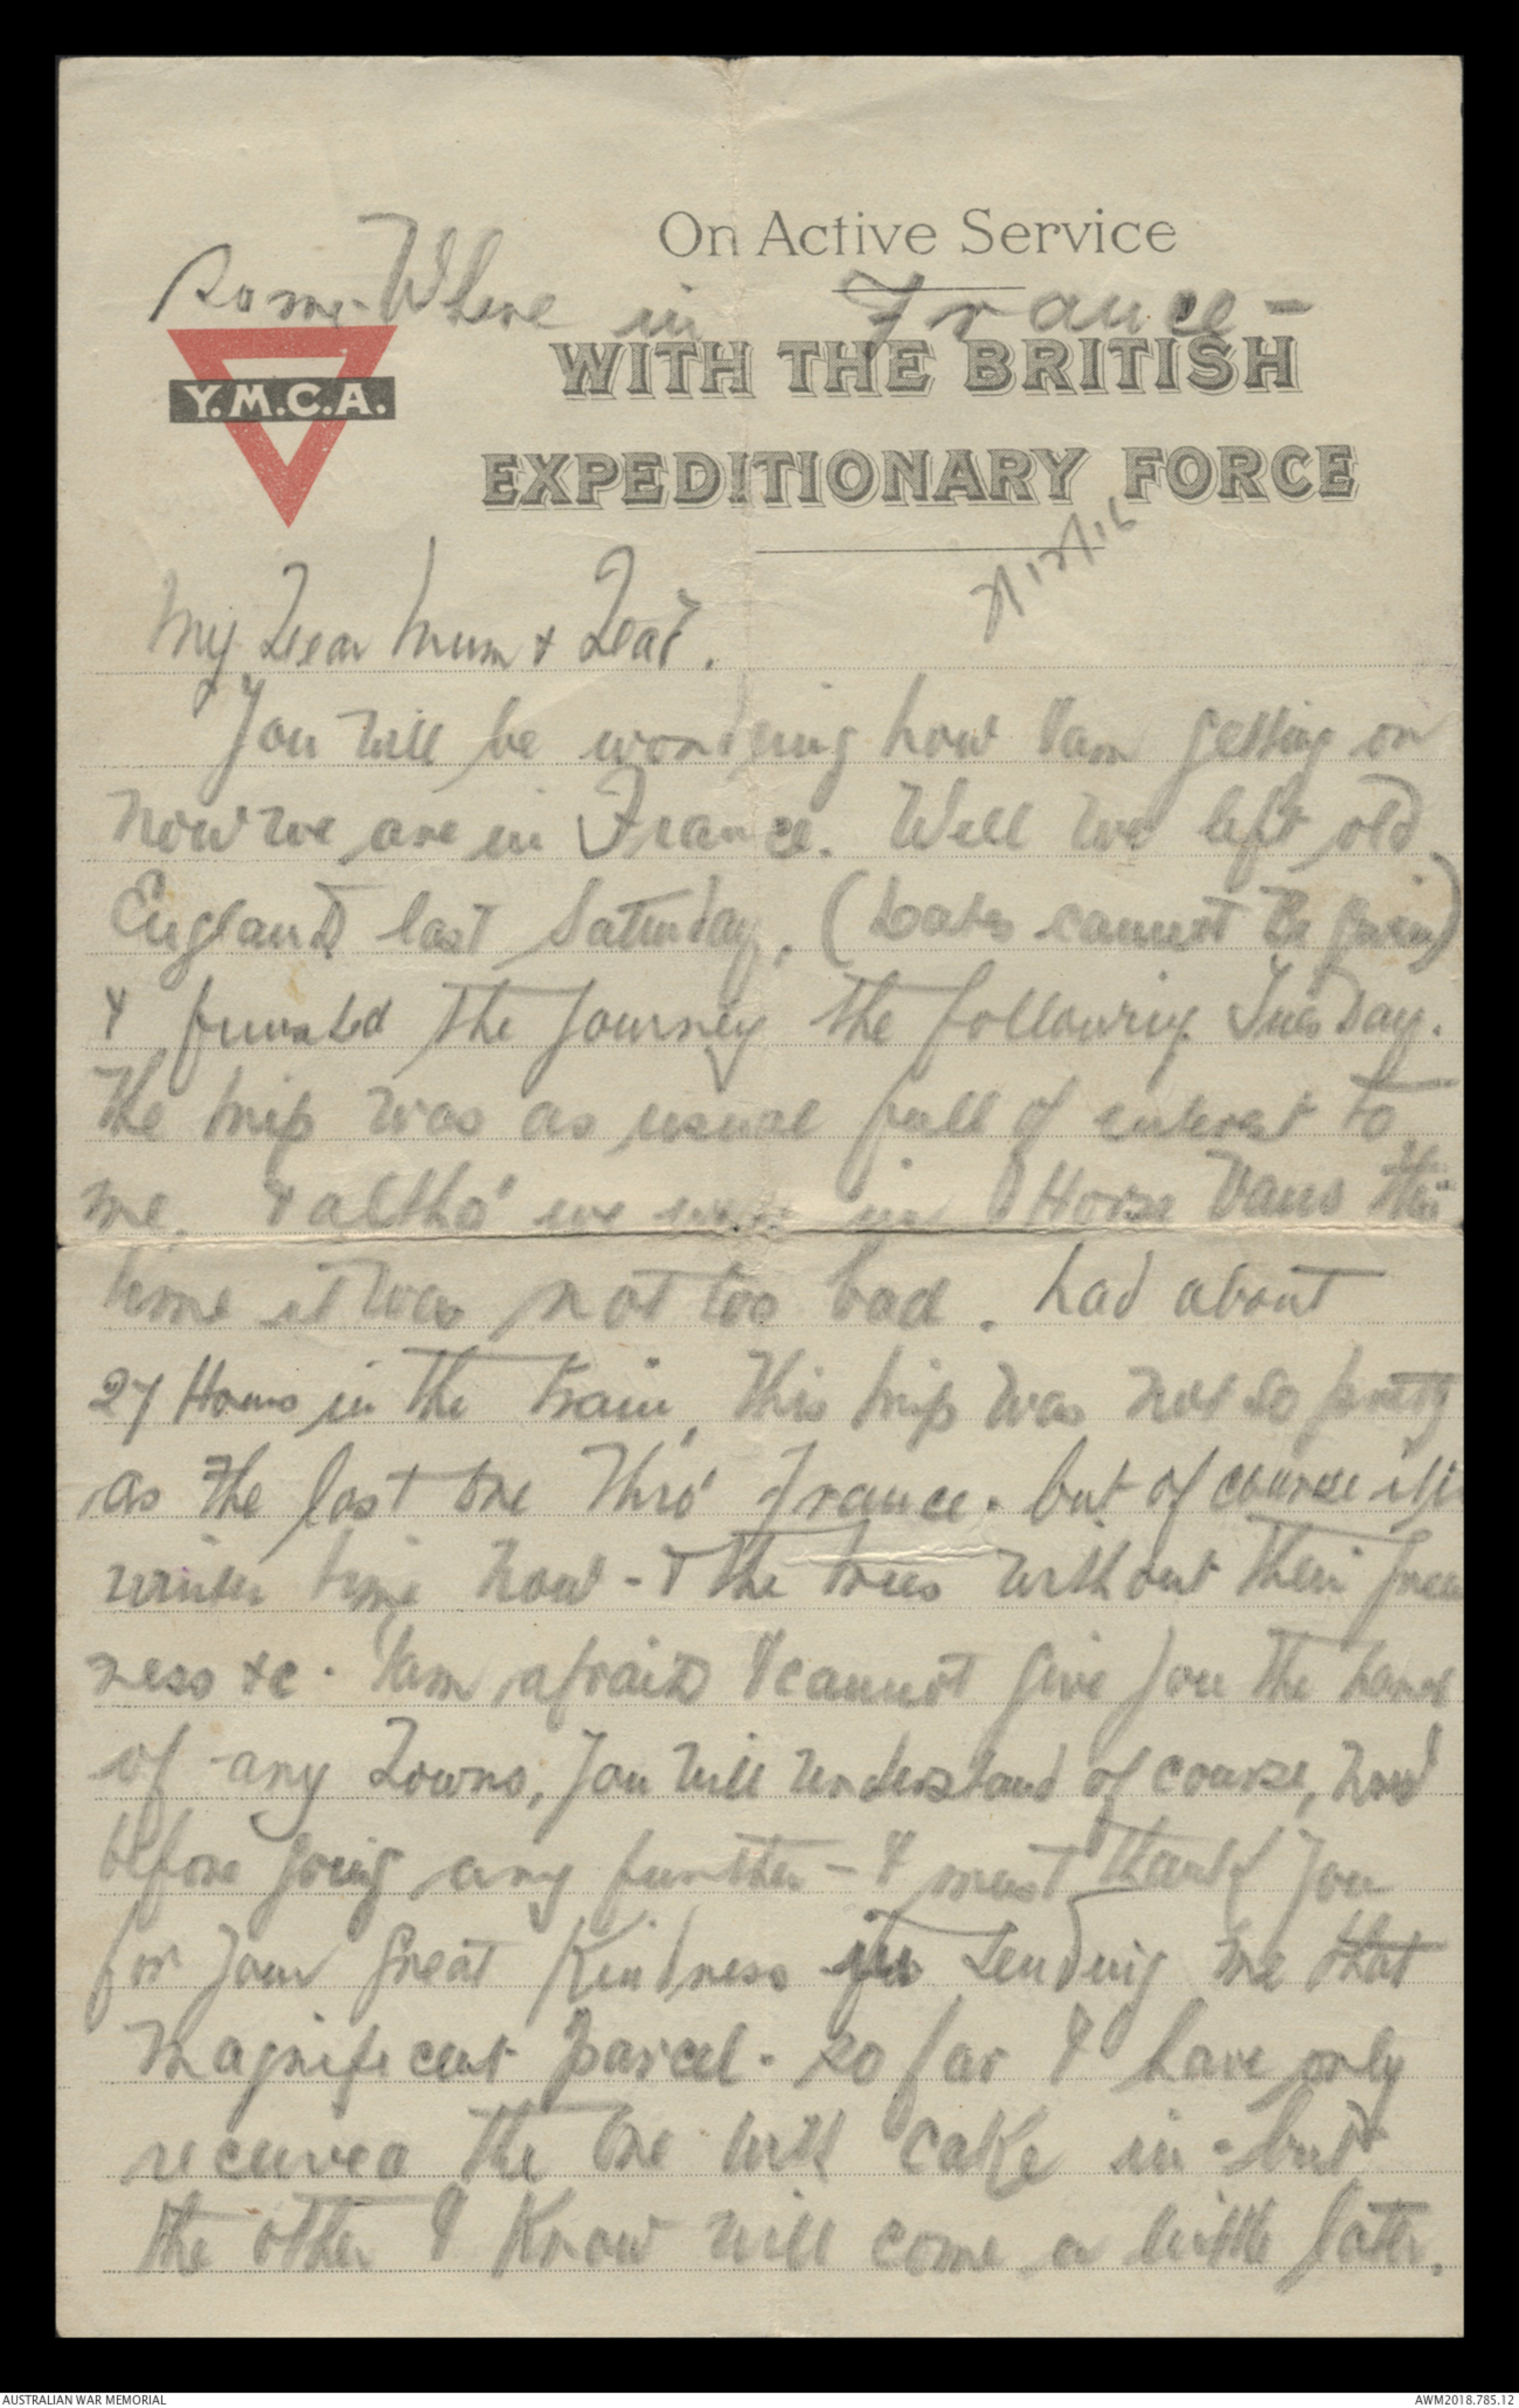 On Active Service
Some-Where in France -
WITH THE BRITISH
Y.M.C.A.
EXPEDITIONARY FORCE
7/12/16
My Dear Mum & Dad.
You will be wondering how I am getting on
now we are in France. Well we left old
England last Saturday, (Dates cannot be given)
& finished the journey the following Tuesday.
The trip was as usual full of interest to
me. & altho' we were in Horse Vans this
time it was not too bad. had about
27 Hours in the train, This trip was not so pretty
as the last one Thro' France. but of course its
winter time now - & the trees without their green
ness &c. I am afraid I cannot give you the names
of any Towns, You will understand of course, now
before going any further - I must thank you
for your great Kindness in sending me that
magnificent parcel. so far I have only
received the one with cake in - but
the other I know will come a little later.
AUSTRALIAN WAR MEMORIAL
AWM2018.785.12